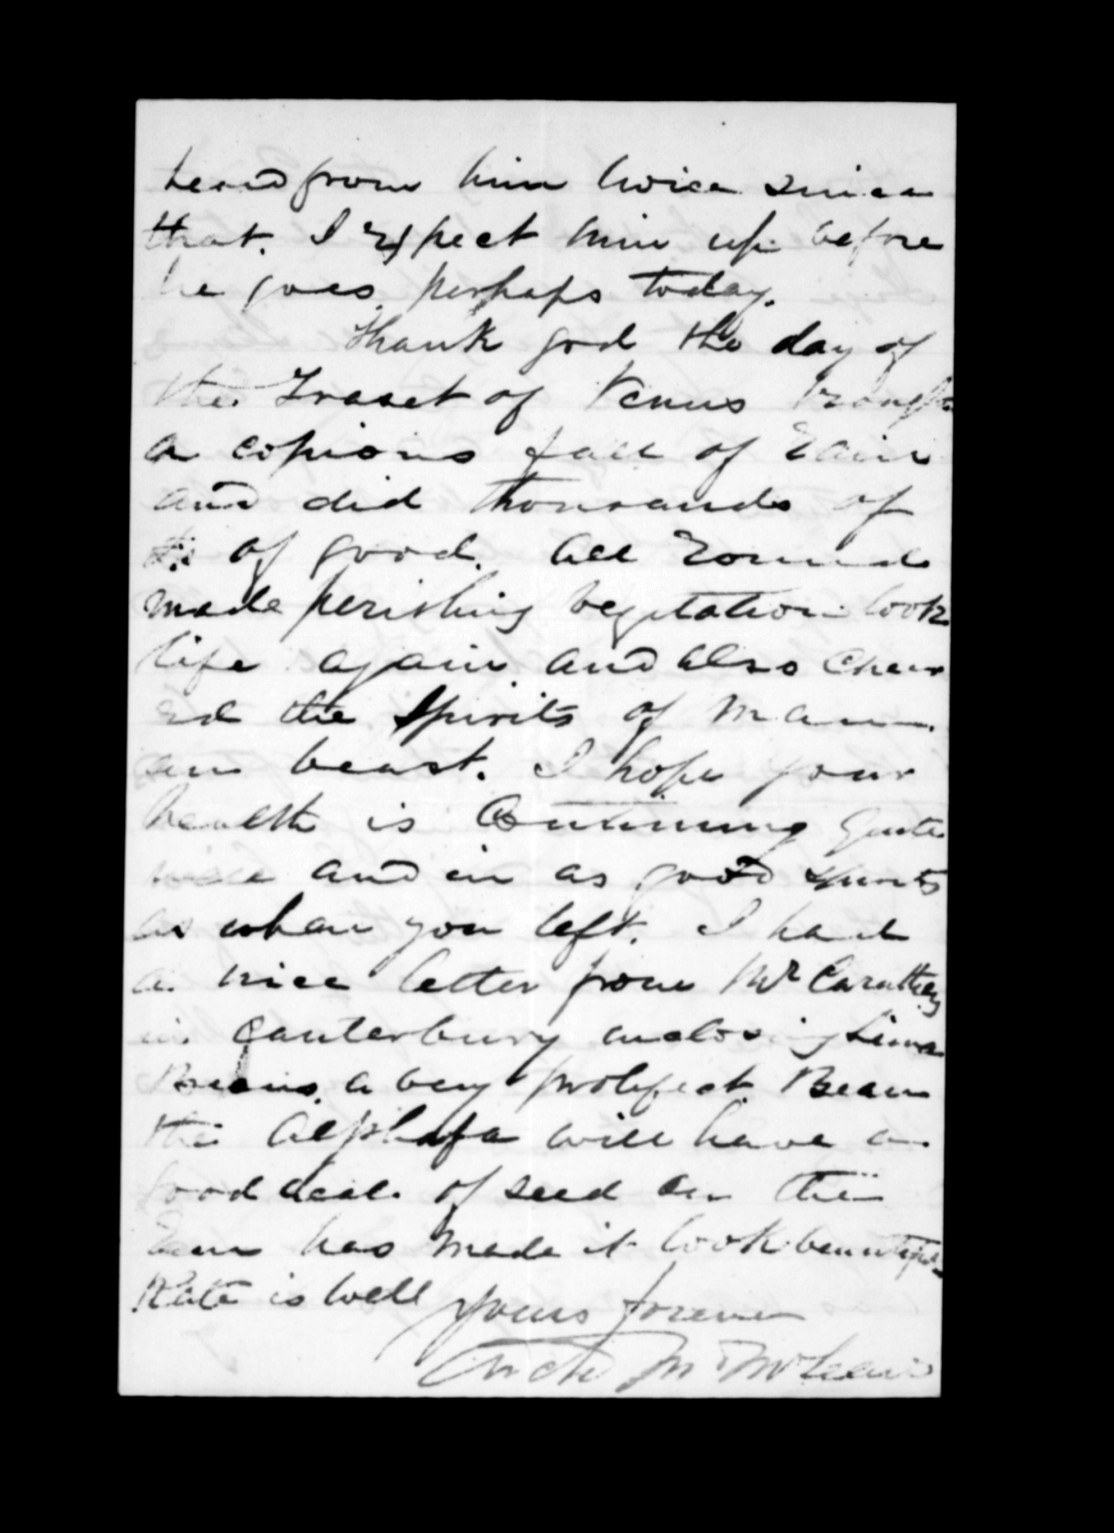 heard from him twice since
that. I expect him up before
he goes, perhaps today.
Thank god the day of
the Traset of Venus brought
a copious fall of rain
and did thousands of
of good. all round
made perishing vegitation look
life again and also cheer
ed the Spirits of man
an beast. I hope your
health is Continuing quite
well and in as good spirits
as when you left. I had
a nice letter from Mr Caruthers
in Canterbury enclosing Lima
Beans, a very prolifect Bean
the Alphafa will have a
good deal of seed on the
rain has made it look beautiful
Kate is well yours forever
Archd McLean